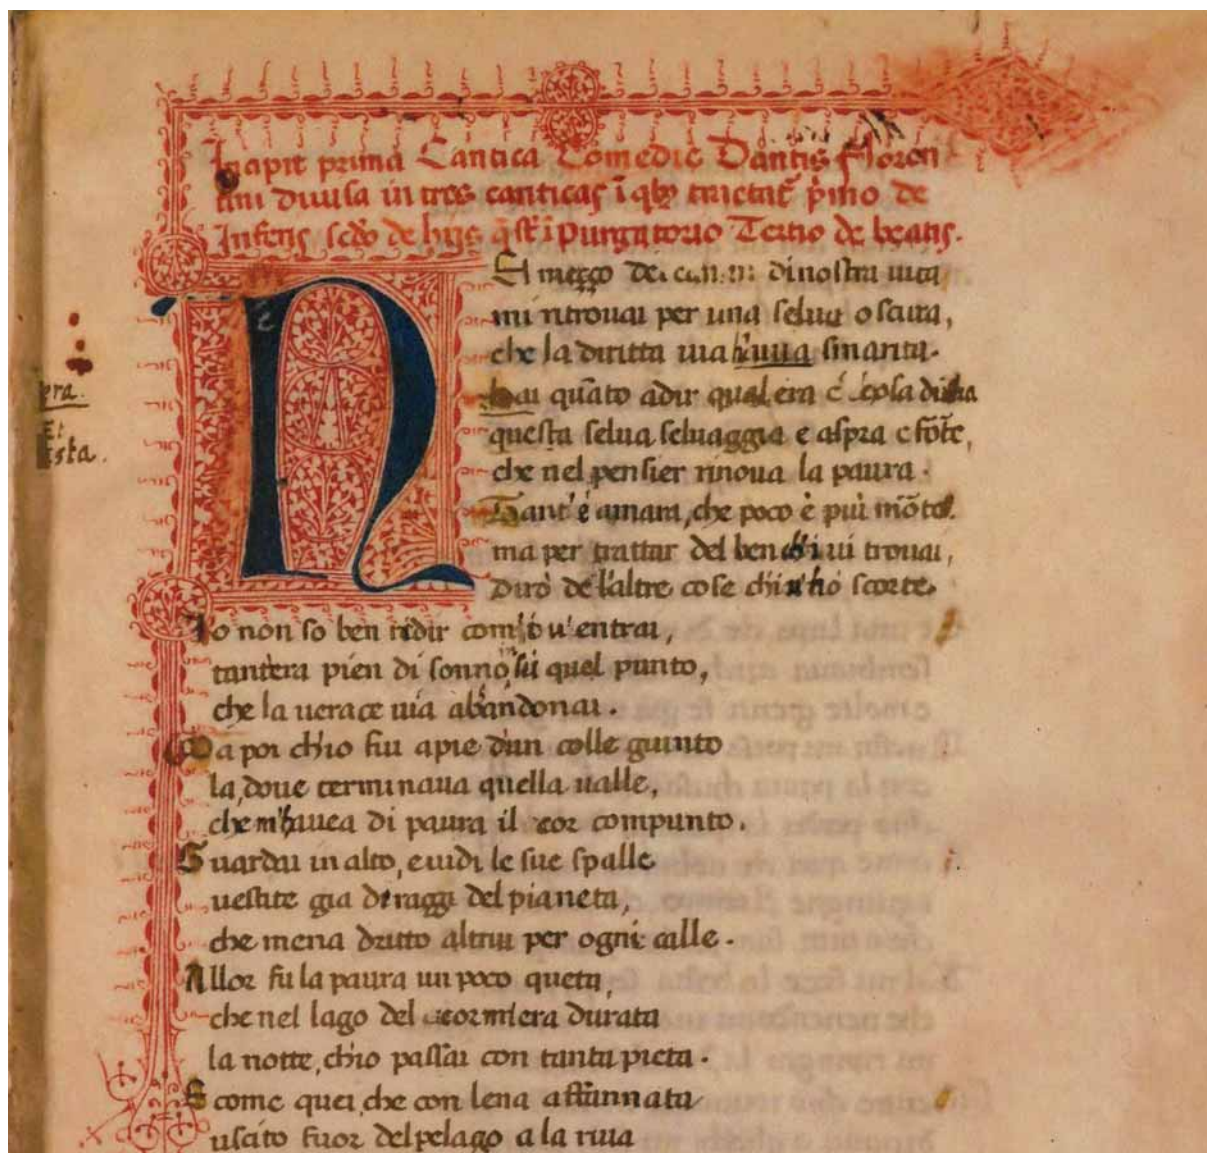 Incipit prima Cantica Comedie Dantis Floren
tini diuisa in tres canticas ī qb₉ tractat᷑ p̄mo de
Infer̄is scd̄o de hiis q̄ st̄ ī Purgatorio Tertio de beatis.
NEl meççо del di nostra uita
mi ritrouai per una selua oscura,
che la diritta uia h'auea smarita.
hai quāto adir qual era é cosa dura
questa selua seluaggia e aspra e fōrte,
che nel pensier rinoua la paura.
Tant'é amara, che poco è più mōrte.
ma per trattar del ben ch'i ui trouai,
Dirò de l'altre cose ch'i u'hò scorte.
Io non so ben ridir com'io u'entrai,
tant'era pien di sonno in sù quel punto,
che la uerace uia abbandonai.
Ma poi ch'io fui apie d'un colle giunto
la, doue terminaua quella ualle,
che m'hauea di paura il cor compunto.
Guardai in alto, e uidi le sue spalle
uestite gia de raggi del pianeta,
che mena dritto altrui per ogni calle.
Allor fu la paura un poco queta,
che nel lago del cor m'era durata
la notte, ch'io passai con tanta pieta.
E come quei, che con lena affannata
uscito fuor del pelago a la riua